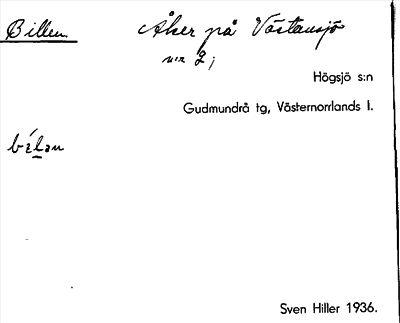 Billen. Åker på Västansjö
n:r 2;
Högsjö s:n
Gudmundrå tg, Västernorrlands l.
Sven Hiller 1936.